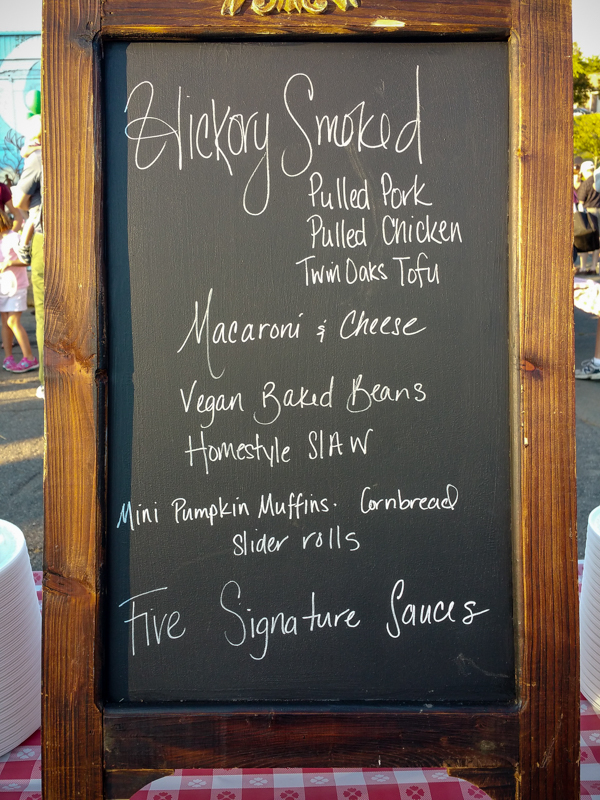 Hickory Smoked
Pulled Pork
Pulled Chicken
Twin Oaks Tofu
Macaroni & Cheese
Vegan Baked Beans
Homestyle SlAW
Mini Pumpkin Muffins. Cornbread
slider rolls
Five Signature Sauces